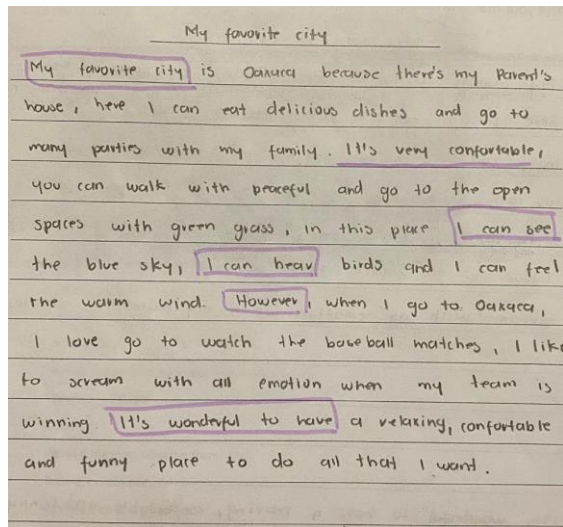 My favorite city
My favorite city is Oaxaca because there's my Parent's
house, here I can eat delicious dishes and go to
many parties with my family. It's very confortable,
you can walk with peaceful and go to the open
spaces with green grass, in this place I can see
the blue sky, I can hear birds and I can feel
the warm wind. However, when I go to Oaxaca,
I love go to watch the baseball matches, I like
to scream with all emotion when my team is
winning. It's wonderful to have a relaxing, confortable
and funny place to do all that I want.